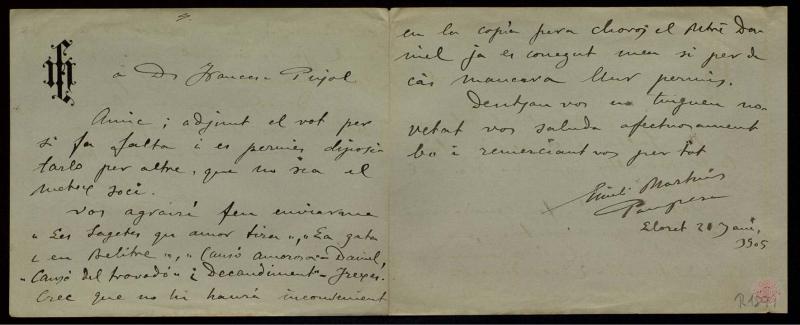 à Dn Francesc Pujol
Amic; adjunt el vot per
si fa falta i es permés diposi-
tarlo per altre, que no sia el
meteix soci.
Vos agrairé feu enviarme
"Les Sagetes qu amor tira", "La gata
i en Belitre", "Cansó amorosa - Daniel,
"Cansó del trovadó" i Decandiment - Freixas.
Crec que no hi haurá inconvenient
en la copia pera choros el Mtre Da-
niel ja es conegut meu si per de
cás mancara llur permis.
Dentjau vos no tinguen no-
vetat vos saluda afectuosament
bo i remerciant vos per tot
Emili Martinez
Lloret 20 Jany
1905
R.1899